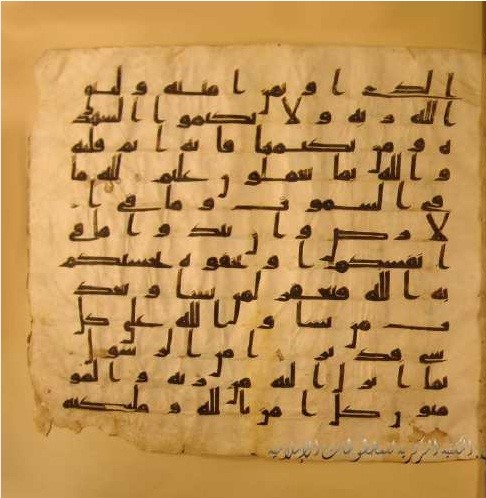 الذي اوتمن امنته وليتق
الله ربه ولا تكتموا الشهد
ه ومن يكتمها فانه اثم قلبه
والله بما تعملون عليم لله ما
في السموت وما في ا
لارض وان تبدوا ما في
انفسكم او تخفوه يحسبكم
به الله فيغفر لمن يشا ويعذ
ب من يشا والله على كل
شي قدير امن الرسول
بما انزل اليه من ربه والمو
منون كل امن بالله وملئكته
المكتبة المركزية للمخطوطات الإسلامية